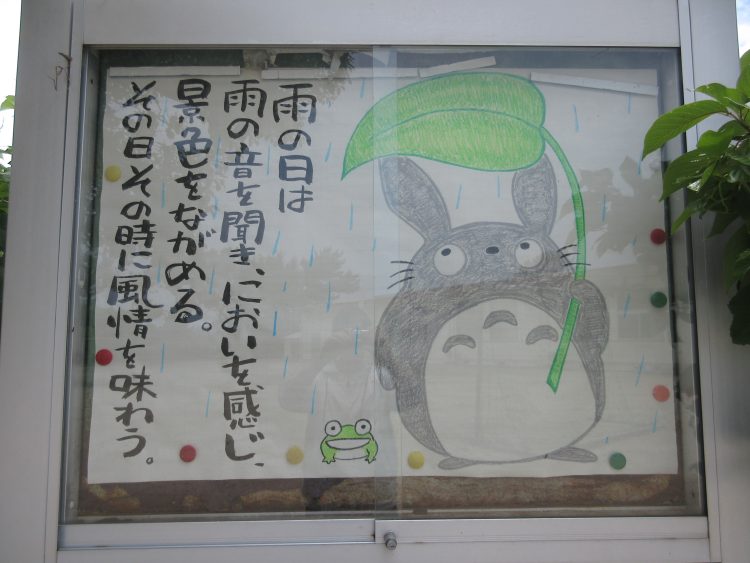 雨の日は
雨の音を聞き、においを感じ、
景色をながめる。
その日その時に風情を味わう。